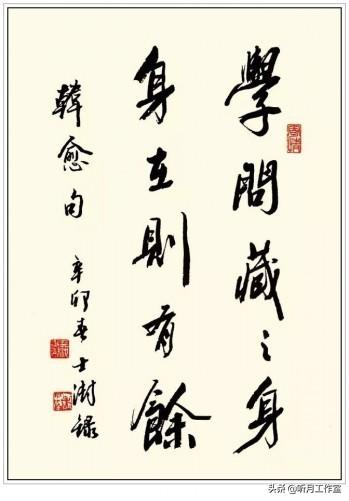 學問藏之身
身在則有餘
韓愈句
辛卯春士澍录
头条 @听月工作室